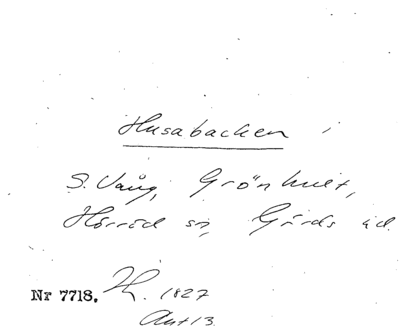 Husabacken
S. Vång, Grönhult,
Hörröd sn, Gärds hd.
Nr 7718. 1827
Akt 13.